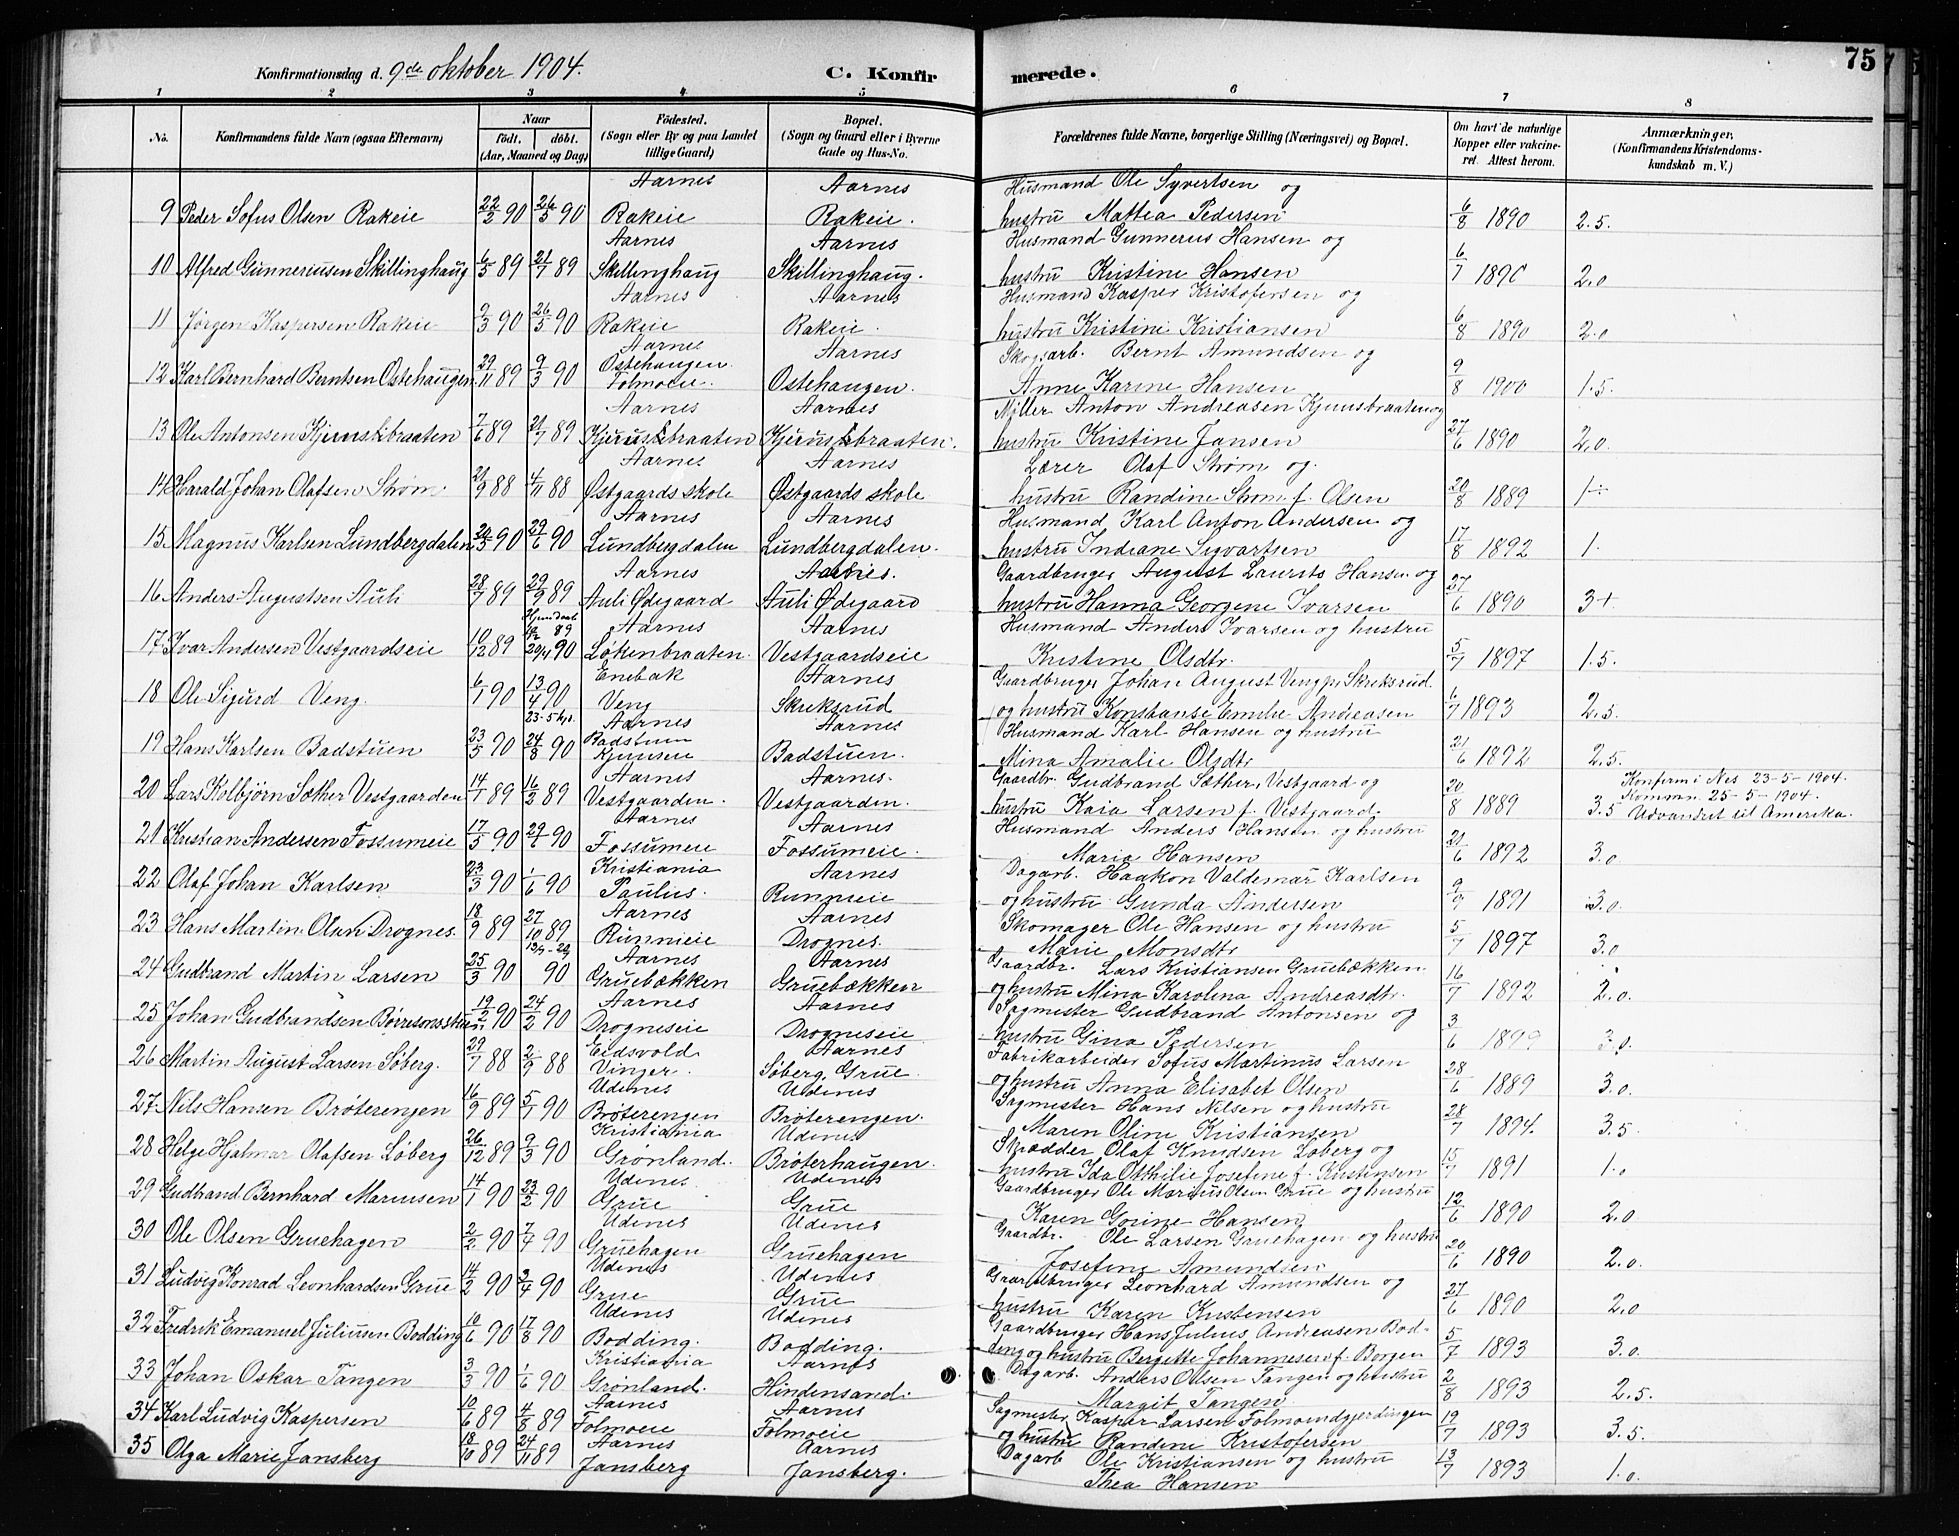 75
Konfirmationsdag d. 9de oktober 1904. C. Konfirmerede.
1 2 3 4 5 6 7 8
No. Konfirmandens fulde Navn (ogsaa Efternavn) Naar født. døbt. (Aar, Maaned og Dag) Fødested. (Sogn eller By og paa Landet tillige Gaard) Bopæl. (Sogn og Gaard eller i Byerne Gade og Hus-No. Forældrenes fulde Navne, borgerlige Stilling (Næringsvei) og Bopæl. Om havt de naturlige Kopper eller vakcineret. Attest herom. Anmærkninger. (Konfirmandens Kristendomskundskab m. V.)
Aarnes Aarnes Husmand Ole Syvertsen og
9 Peder Sofus Olsen Rakeie 22/2 90 26/5 90 Rakeie Rakeie. hustru Mattea Pedersen 6/8 1890 2.5.
Aarnes Aarnes Husmand Gunnerius Hansen og
10 Alfred Gunneriusen Skillinghaug 6/5 89 21/7 89 Skillinghaug Skillinghaug. hustru Kristine Hansen 6/7 1890 2.0
Aarnes Aarnes Husmand Kasper Kristofersen og
11 Jørgen Kaspersen Rakeie 9/3 90 26/5 90 Rakeie Rakeie. hustru Kristine Kristiansen 6/8 1890 2.0
Aarnes Aarnes Skogsarb. Bernt Amundsen og
12 Karl Bernhard Berntsen Ostehaugen 29/11 89 9/3 90 Ostehaugen. Folmoeie. Ostehaugen. Anne Karine Hansen 9/8 1900 1.5.
Aarnes Aarnes Møller Anton Andreasen Kjuusbraaten og
13 Ole Antonsen 7/6 89 21/7 89 hustru Kristine Jansen 27/6 1890 2.0.
Aarnes Aarnes Lærer Olaf Strøm og
14 Harald Johan Olafsen Strøm. 21/9 88 4/11 88 Østgaards skole Østgaards skole hustru Randine Strøm f. Olsen 20/8 1889 1÷
Aarnes Aarnes Husmand Karl Anton Andersen og
15. Magnus Karlsen Lundbergdalen 24/5 90 29/6 90 Lundbergdalen Lundbergdalen. hustru Indiane Sigvartsen 17/8 1892 1.
Aarnes Aarnes. Gaardbruger August Laurits Hansen og
16 Anders Augustsen Auli 28/7 89 29/9 89 Auli Ødegaard Auli Ødegaard hustru Hanna Georgene Ivarsen 27/6 1890 3+.
89 Aarnes Aarnes Husmand Anders Ivarsen og hustru
17. Ivar Andersen Vestgaardseie 10/12 89 20/4 90 Løkenbraaten. Vestgaardseie Kristine Olsdtr. 5/7 1897 1.5.
Enebak Aarnes Gaardbruger Johan August Veng Skreksrud.
18 Ole Sigurd Veng. 6/1 90 13/4 90 Veng Skreksrud og hustru Konstanse Emilie Andreasen 6/7 1893 2.5.
Aarnes Aarnes Husmand Karl Hansen og hustru
19 Hans Karlsen Badstuen 23/5 90 24/8 90 Badstuen Badstuen. Mina Amalie Olsdtr 21/6 1892 2.5.
Aarnes Aarnes. Gaardbr. Gudbrand Sæther, Vestgaard og Konfirm i Nes 23-5-1904.
20 Lars Kolbjørn Sæther Vestgaarden 14/1 89 16/2 89 Vestgaarden. Vestgaarden. hustru Kaia Larsen f. Vestgaard. 20/8 1889 3.5 Kommn. 25-5-1904. Udvandret til Amerika.
Aarnes Aarnes Husmand Anders Hansen og hustru
21 Kristian Andersen Fossumeie 17/5 90 90 Fossumeie Fossumeie. Maria Hansen 21/6 1892 3.0
Kristiania Aarnes Dagarb. Haakon Valdemar Karlsen
22 Olaf Johan Karlsen 23/3 90 1/6 90 Paulus. Runnieie og hustru Gunda Andersen 9/9 1891 3.0.
Aarnes Aarnes Skomager Ole Hansen og hustru
23 Hans Martin Olsen Drognes. 18/9 89 27/10 89 Runnieie Drognes. Marie Monsdtr 5/7 1897 3.0
Aarnes Aarnes Gaardbr. Lars Kristiansen Gruebækken
24 Gudbrand Martin Larsen 25/3 90 90 Gruebækken Gruebækken og hustru Mina Karolina Andreasdtr. 16/7 1892 2.0.
Aarnes Aarnes Sagmester Gudbrand Antonsen og
25 Johan Gudbrandsen 19/2 90 24/2 90 Drogneseie Drogneseie hustru Gina Pedersen 3/6 1899 3.0.
Eidsvold Aarnes Fabrikarbeider Sofus Martinus Larsen
26 Martin August Larsen Søberg. 29/7 88 2/9 88 Vinger. Søberg, Grue. og hustru Anna Elisabet Olsen 28/6 1889 3.0.
Udenes Udenes Sagmester Hans Nilsen og hustru
27. Nils Hansen Brøterengen 16/9 89 5/1 90 Brøterengen Brøterengen. Maren Oline Kristiansen 28/7 1894. 3.5.
Kristiania Udenes Skrædder Olaf Knudsen Løberg og
28 Helge Hjalmar Olafsen Løberg 26/12 89 9/3 90 Grønland. Brøterhaugen. hustru Ida Otthilie Josefine f. Kristensen 15/7 1891 1.0
Udenes Udenes Gaardbruger Ole Marius Olsen Grue og hustru
29 Gudbrand Bernhard Mariusen 14/1 90 23/2 90 Grue Grue Karen Gorine Hansen 12/6 1890 2.0
Udenes Udenes Gaardbr. Ole Larsen Gruehagen og hustru
30 Ole Olsen Gruehagen 2/2 90 7/4 90 Gruehagen Gruehagen Josefine Amundsen 20/6 1890 2.0.
Udenes Udenes Gaardbruger Leonhard Amundsen og
31 Ludvig Konrad Leonhardsen Grue 14/2 90 3/4 90 Grue Grue hustru Karen Kristensen 27/6 1890 2.0
Udenes Udenes Gaardbruger Hans Julius Andreasen Bod-
32 Fredrik Emanuel Juliusen Bodding 10/6 90 17/8 90 Bodding. Bodding. ding og hustru Bergitte Johannesen f. Borgen 5/7 1893 3.0.
Kristiania Aarnes Dagarb. Anders Olsen Tangen og hustru
33 Johan Oskar Tangen 3/3 90 1/6 90 Grønland. Hindensand. Margit Tangen 2/8 1893 2.5.
Aarnes Aarnes Sagmester Kasper Larsen
34 Karl Ludvig Kaspersen 10/6 89 4/8 89 Folmoeie Folmoeie og hustru Randine Kristofersen 19/7 1893 3.5.
Aarnes Aarnes Dagarb Ole Kristiansen og hustru
35 Olga Marie Jansberg 18/10 89 24/11 89 Jansberg Jansberg. Thea Hansen 13/7 1893 1.0.